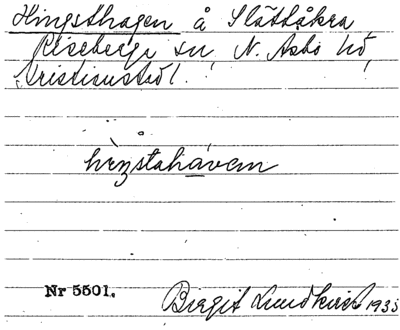 Hingsthagen å Slättåkra
Riseberga sn, N. Åsbo hd,
Kristianst. l.
hìŋstahàvαm
Nr 5501.
Birgit Lundkvist 1935